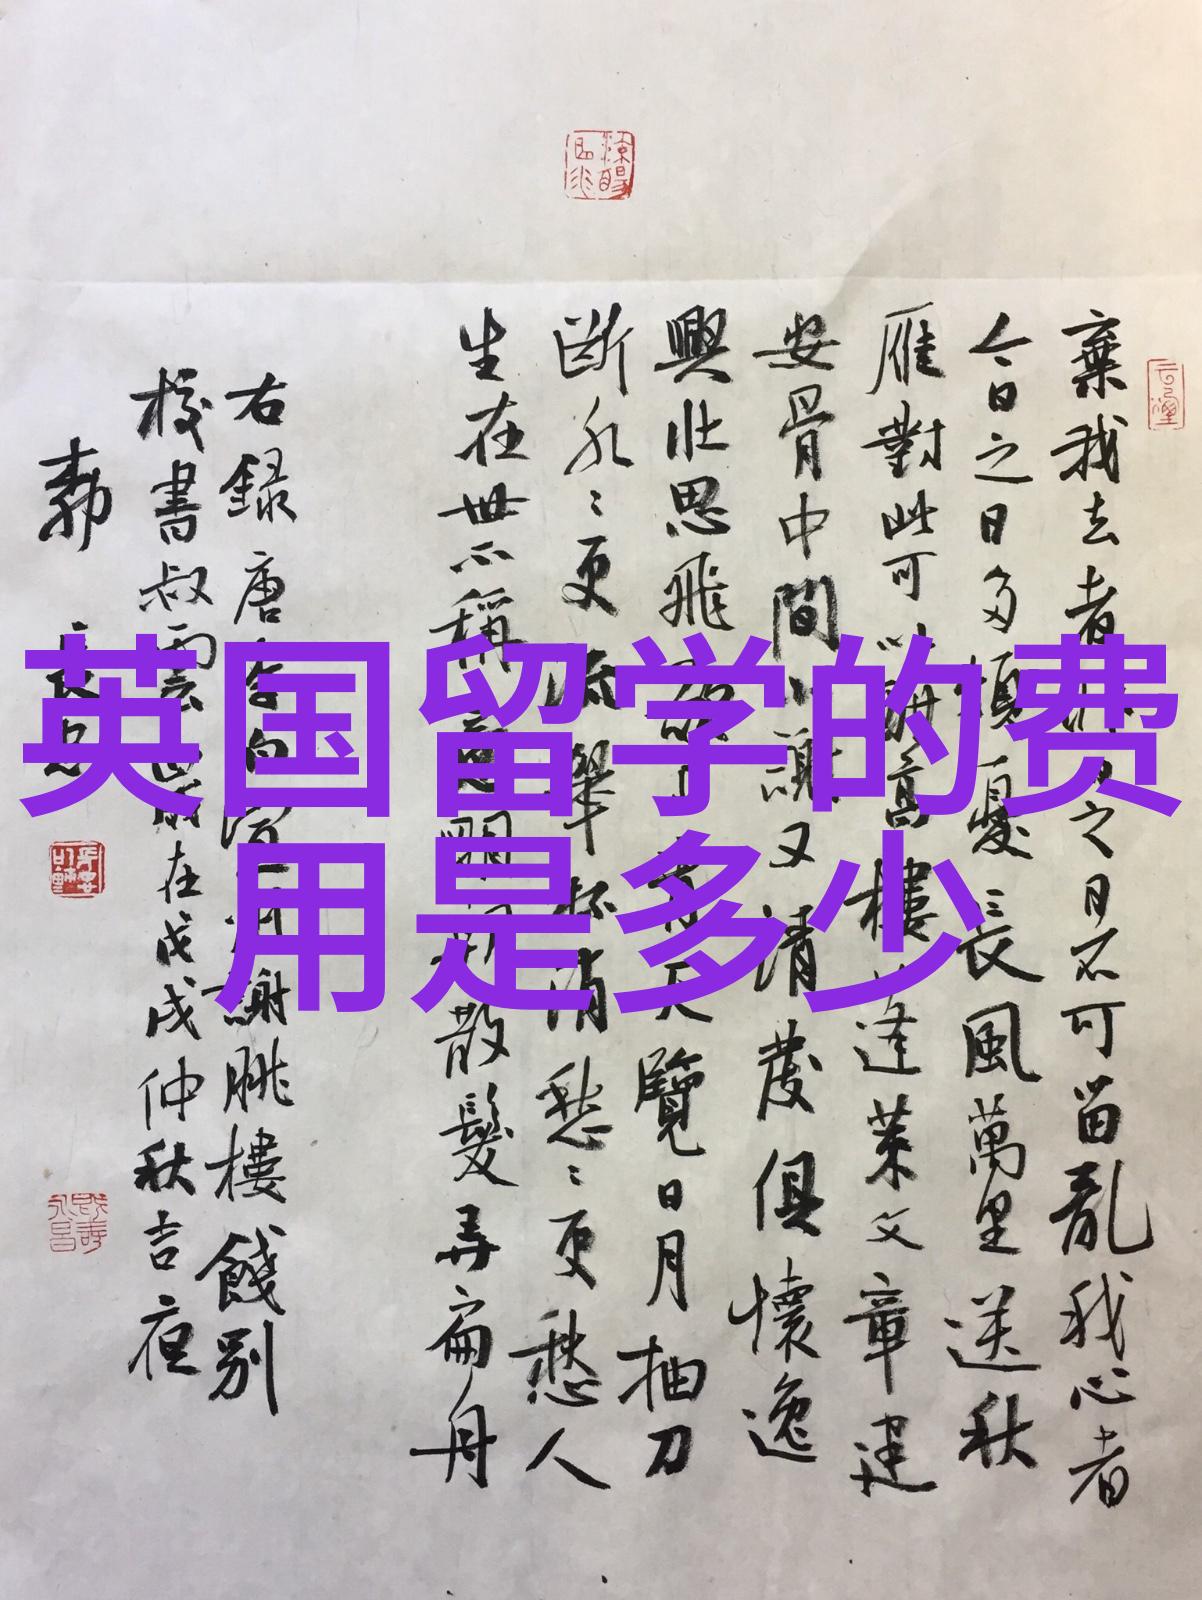 英国留学的费
用是多少
棄我去者昨日之日不可留亂我心者
今日之日多煩憂長風萬里送秋
雁對此可以酣高樓逢萊文章建
安骨中間小謝又清發俱懷逸
興壯思飛欲上青天覽日月抽刀
断水々更流舉杯消愁々更愁人
生在世不稱意明朝散髮弄扁舟
右録唐李白宣州謝朓樓餞別
校書叔雲歲在戊戌仲秋吉夜